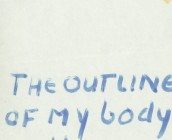 THE OUTLINE
OF My body